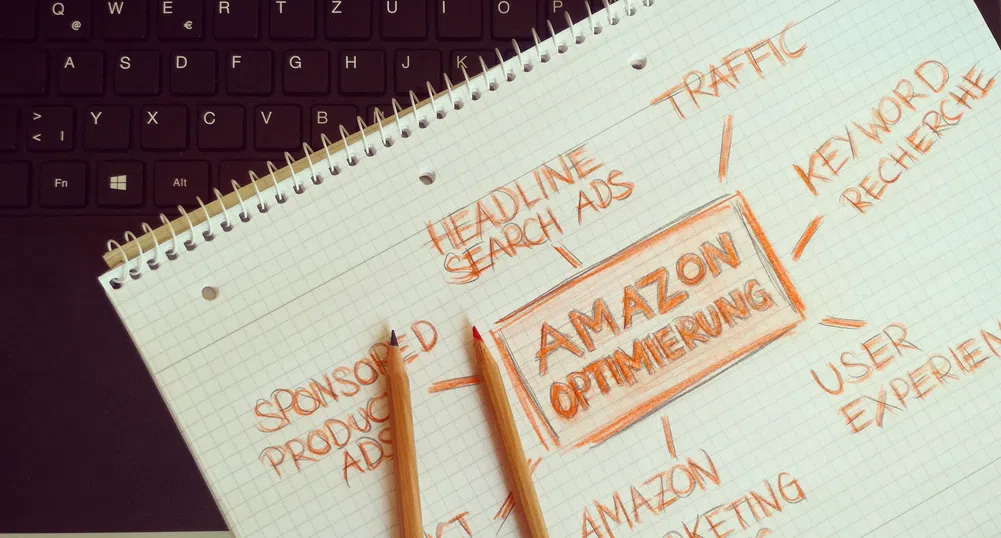 Q W E R T Z U I O P
@ €
A S D F G H J K
> Y X C V B
< |
Fn Alt
TRAFFIC
KEYWORD
RECHERCHE
HEADLINE
SEARCH ADS
AMAZON
OPTIMIERUNG
SPONSORED
PRODUCT
ADS
USER
EXPERIEN
AMAZON
RKETING
CT